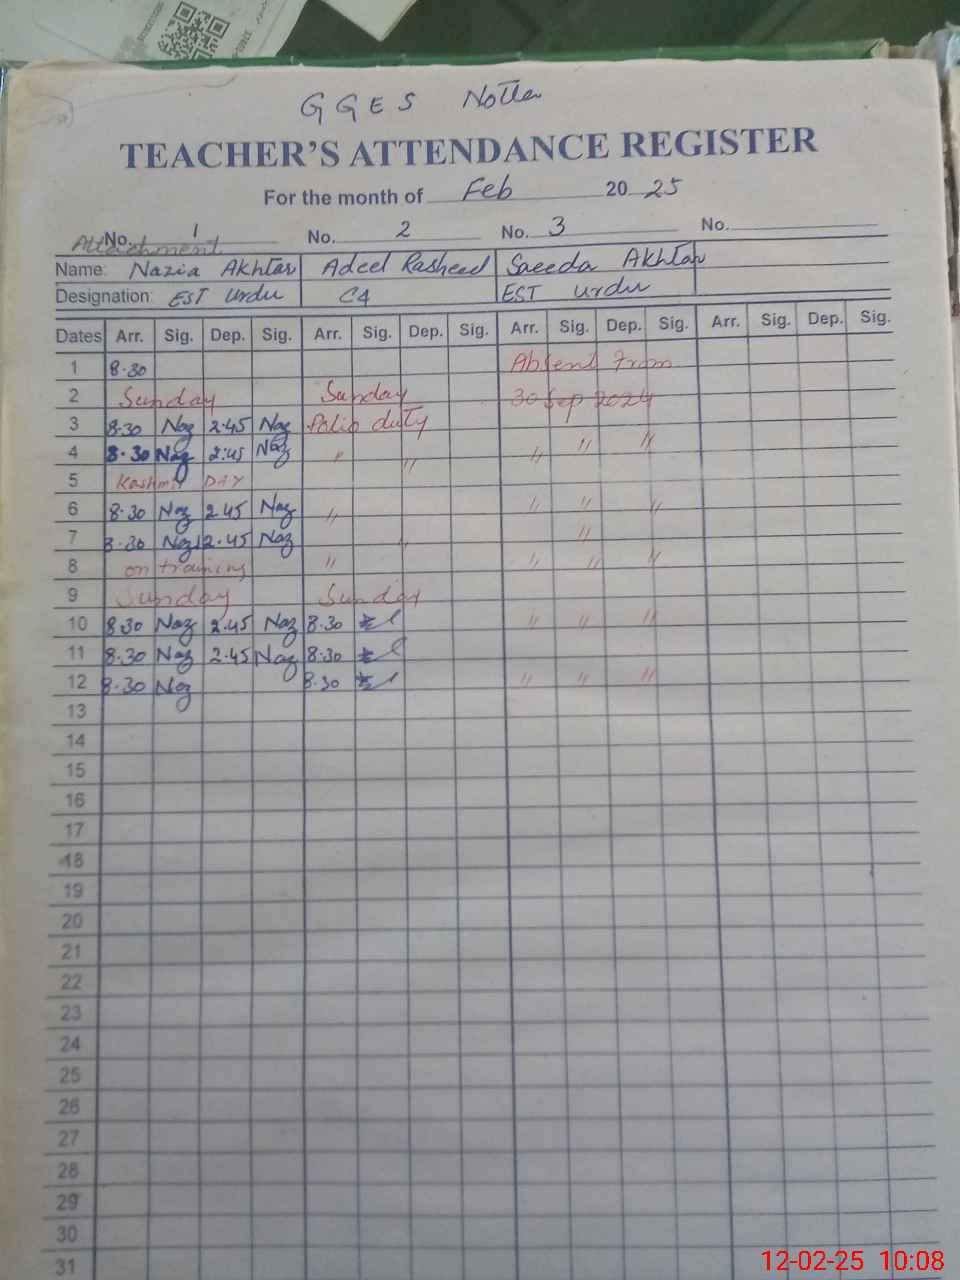 GGES Notla
TEACHER'S ATTENDANCE REGISTER
For the month of Feb 2025
Attachment
No. 1 No. 2 No. 3 No.
Name: Nazia Akhtar Adeel Rasheed Saeeda Akhtar
Designation: EST Urdu C4 EST Urdu
Dates Arr. Sig. Dep. Sig. Arr. Sig. Dep. Sig. Arr. Sig. Dep. Sig. Arr. Sig. Dep. Sig.
1 8.30 Absent From
2 Sunday Sunday 30 Sep 2024
3 8.30 Naz 2.45 Naz Polio duty
4 8.30 Naz 2:45 Naz " " " " "
5 Kashmir DAY
6 8.30 Naz 2.45 Naz " " " "
7 8.30 Naz 2.45 Naz " "
8 on training " " " "
9 Sunday Sunday
10 8.30 Naz 2.45 Naz 8.30 " " "
11 8.30 Naz 2.45 Naz 8.30
12 8.30 Naz 8.30 " " "
13
14
15
16
17
18
19
20
21
22
23
24
25
26
27
28
29
30
31
12-02-25 10:08